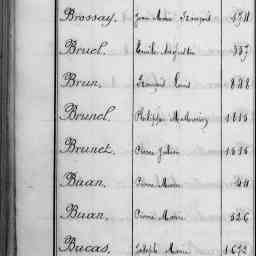 Brossay, Jean Marie François
Bruel, Emile Augustin 337
Brun, François Louis 888
Brunel, Philippe
Brunet, Pierre Julien 1536
Buan, Pierre Marie
Buan, Pierre Marie 526
Bucas, Joseph Marie 1672